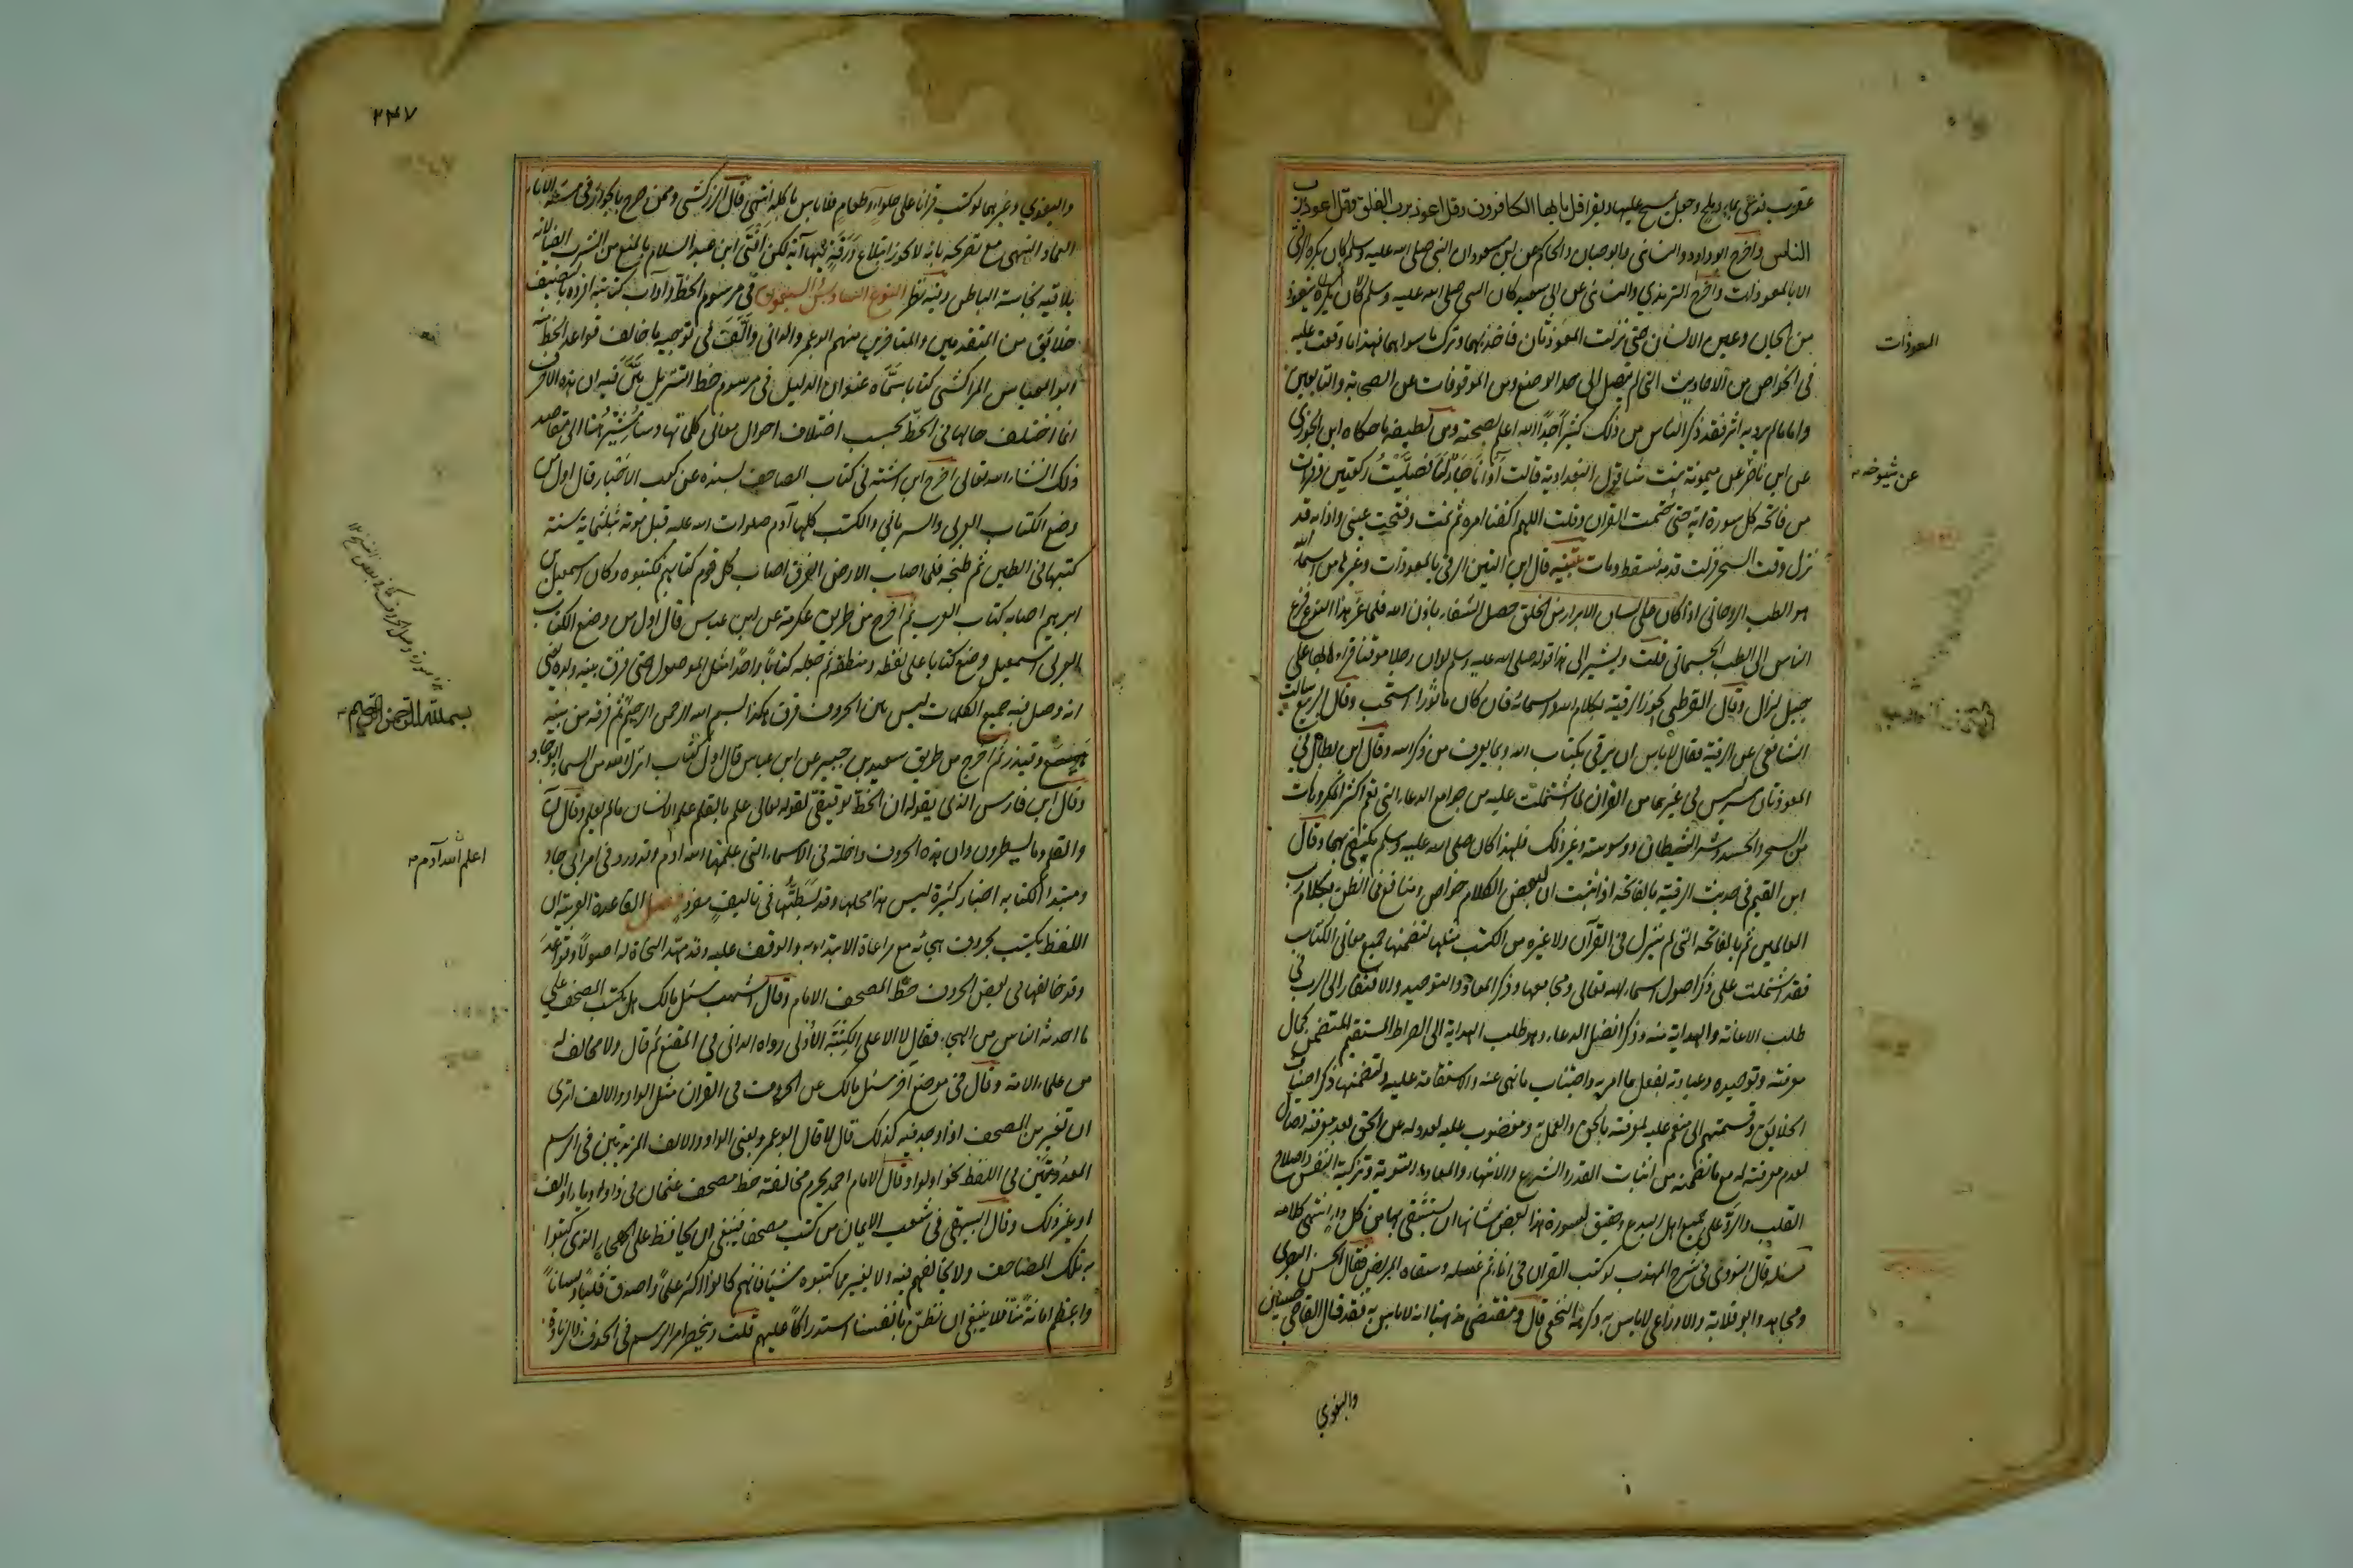 عقرب فدعى بماء وملح وجعل يمسح عليها ويقرا قل يا ايها الكافرون وقل اعوذ برب الفلق وقل اعوذ برب
الناس واخرج ابو داود والنسائى وابو حبان والحاكم عن ابن مسعود ان النبى صلى الله عليه وسلم كان يكره الرقى
الا بالمعوذات واخرج الترمذي والنسائى عن ابى سعيد كان النبى صلى الله عليه وسلم كان يتعوذ
من الجان وعين الانسان حتى نزلت المعوذتان فاخذ بهما وترك ما سواهما فهذا ما وقفت عليه
فى الخواص من الاحاديث التى لم تصل الى حد الوضع ومن الموقوفات عن الصحابة والتابعين
واما ما لم يرد به اثر فقد ذكر الناس من ذلك كثيرا جدا الله اعلم بصحته ومن لطيفه ما حكاه ابن الجوزى
عن ابن ناصر عن ميمونة بنت شاقول البغدادية قالت آذانا جار لنا فصليت ركعتين وقرات
من فاتحة كل سورة اية حتى ختمت القران وقلت اللهم اكفنا امره ثم نمت وفتحت عينى واذا به قد
نزل وقت السحر فزلت قدمه فسقط ومات تنبيه قال ابن التين الرقى بالمعوذات وغيرها من اسماء الله
هو الطب الروحانى اذا كان على لسان الابرار من الخلق حصل الشفاء باذن الله فلما عز هذا النوع فزع
الناس الى الطب الجسمانى قلت ويشير الى هذا قوله صلى الله عليه وسلم لو ان رجلا موقنا قراء بها على
جبل لزال وقال القرطبى تجوز الرقية بكلام الله واسمائه فان كان ماثورا استحب وقال الربيع سالت
الشافعى عن الرقية فقال لا باس ان يرقى بكتاب الله وبما يعرف من ذكر الله وقال ابن بطال فى
المعوذتان سر ليس فى غيرهما من القران لما اشتملت عليه من جوامع الدعاء التى تعم اكثر المكروهات
من السحر والحسد وشر الشيطان ووسوسته وغير ذلك فلهذا كان صلى الله عليه وسلم يكتفى بهما وقال
ابن القيم فى حديث الرقية بالفاتحة اذا ثبت ان لبعض الكلام خواص ومنافع فما الظن بكلام رب
العالمين ثم بالفاتحة التى لم ينزل فى القرآن ولا غيره من الكتب مثلها لتضمنها جميع معانى الكتاب
فقد اشتملت على ذكر اصول اسماء الله تعالى ومجامعها وذكر المعاد والتوحيد والافتقار الى الرب فى
طلب الاعانة والهداية منه وذكر افضل الدعاء وهو طلب الهداية الى الصراط المستقيم المتضمن كمال
معرفته وتوحيده وعبادته بفعل ما امر به واجتناب ما نهى عنه والاستقامة عليه ولتضمنها ذكر اصناف
الخلايق وقسمتهم الى منعم عليه لمعرفته بالحق والعمل به ومغضوب عليه لعدوله عن الحق بعد معرفته وضال
لعدم معرفته له مع ما تضمنه من اثبات القدر والشرع والاسماء والمعاد والتوبة وتزكية النفس واصلاح
القلب والرد على جميع اهل البدع وحقيق لسورة هذا بعض شانها ان يستشفى بها من كل داء انتهى كلامه
مسئلة قال النووى فى شرح المهذب لو كتب القران فى اناء ثم غسله وسقاه المريض فقال الحسن البصرى
ومجاهد وابو قلابة والاوزاعى لا باس به وكرهه النخعى قال ومقتضى مذهبنا انه لا باس به فقد قال القاضى حسين
والبغوي
المعوذات
عن شيوخه
٢٤٧
والبغوي وغيرهما لو كتب قرانا على حلواء وطعام فلا باس باكله انتهى قال الزركشى وممن صرح بالجواز فى مسئلة الاناء
العماد النيهى مع تصريحه بانه لا يجوز ابتلاع ورقة فيها آية لكن افتى ابن عبد السلام بالمنع من الشرب ايضا لانه
يلاقيه نجاسة الباطن وفيه نظر النوع السادس والسبعون فى مرسوم الخط وآداب كتابته افرده بالتصنيف
خلايق من المتقدمين والمتاخرين منهم ابو عمرو الدانى والف فى توجيه ما خالف قواعد الخط منه
ابو العباس المراكشى كتابا سماه عنوان الدليل فى مرسوم خط التنزيل بين فيه ان هذه الاحرف
انما اختلف حالها فى الخط بحسب اختلاف احوال معانى كلماتها وساشير هنا الى مقاصد
ذلك ان شاء الله تعالى اخرج ابن اشته فى كتاب المصاحف بسنده عن كعب الاحبار قال اول من
وضع الكتاب العربى والسريانى والكتب كلها آدم صلوات الله عليه قبل موته بثلثماية سنة
كتبها فى الطين ثم طبخه فلما اصاب الارض الغرق اصاب كل قوم كتابهم فكتبوه وكان اسمعيل بن
ابراهيم اصاب كتاب العرب ثم اخرج من طريق عكرمة عن ابن عباس قال اول من وضع الكتاب
العربى اسمعيل وضع كتابا على لفظه ومنطقه ثم جعله كتابا واحدا مثل الموصول حتى فرق بينه ولده يعنى
انه وصل فيه جميع الكلمات ليس بين الحروف فرق هكذا بسم الله الرحمن الرحيم ثم فرقه من بنيه
هميسع وقيذر ثم اخرج من طريق سعيد بن جبير عن ابن عباس قال اول كتاب انزل الله من السماء ابو جاد
وقال ابن فارس الذى يقوله ان الخط توقيفى لقوله تعالى علم بالقلم علم الانسان ما لم يعلم وقال ن
والقلم وما يسطرون وان هذه الحروف داخلة فى الاسماء التى علمها الله ادم وقد ورد فى امر ابى جاد
ومبتدا الكتابه اخبار كثيرة ليس هذا محلها وقد بسطتها فى تاليف مفرد فصل القاعدة العربية ان
اللفظ يكتب بحروف هجائه مع مراعاة الابتداء به والوقف عليه وقد مهد النحاة له اصولا وقواعد
وقد خالفها فى بعض الحروف خط المصحف الامام وقال اشهب سئل مالك هل يكتب المصحف على
ما احدثه الناس من الهجاء فقال لا الا على الكتبة الاولى رواه الدانى فى المقنع ثم قال ولا مخالف له
من علماء الامة وقال فى موضع آخر سئل مالك عن الحروف فى القران مثل الواو والالف اترى
ان تغير من المصحف اذا وجد فيه كذلك قال لا قال ابو عمرو يعنى الواو والالف المزيدتين فى الرسم
المعدومتين فى اللفظ نحو اولوا وقال الامام احمد يحرم مخالفة خط مصحف عثمان فى واو او ياء او الف
او غير ذلك وقال البيهقى فى شعب الايمان من كتب مصحفا فينبغى ان يحافظ على الهجاء الذى كتبوا
به تلك المصاحف ولا يخالفهم فيه ولا يغير مما كتبوه شيئا فانهم كانوا اكثر علما واصدق قلبا ولسانا
واعظم امانة منا فلا ينبغى ان نظن بانفسنا استدراكا عليهم قلت وينحصر امر الرسم فى الحذف والزيادة
بسم الله الرحمن الرحيم
اعلم ان الله آدم